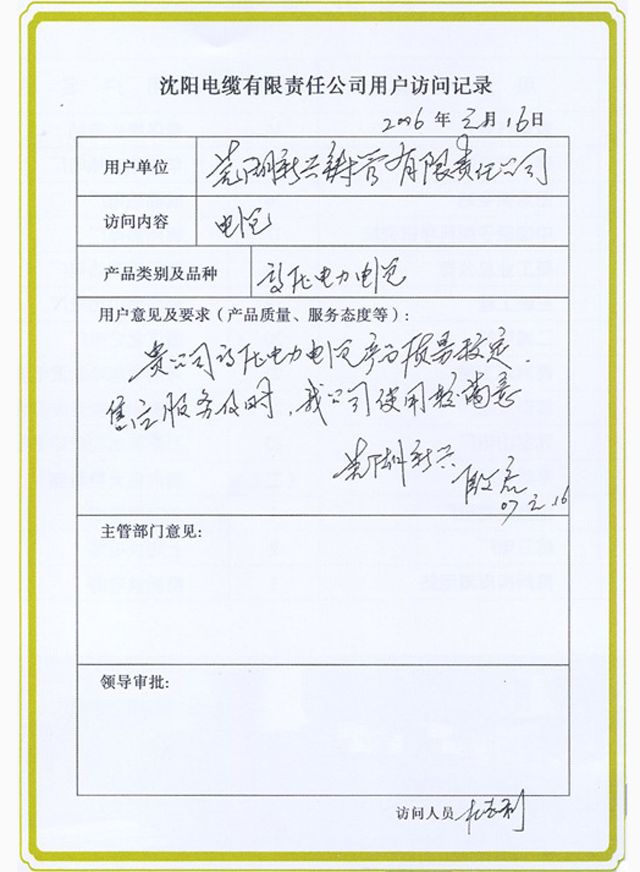 沈阳电缆有限责任公司用户访问记录
2006 年 元月 16日
用户单位 芜湖新兴铸管有限责任公司
访问内容 电缆
产品类别及品种 高压电力电缆
用户意见及要求（产品质量、服务态度等）：
贵公司高压电力电缆产品质量稳定.
售后服务及时，我公司使用较满意
芜湖新兴
07 元 .16
主管部门意见:
领导审批:
访问人员